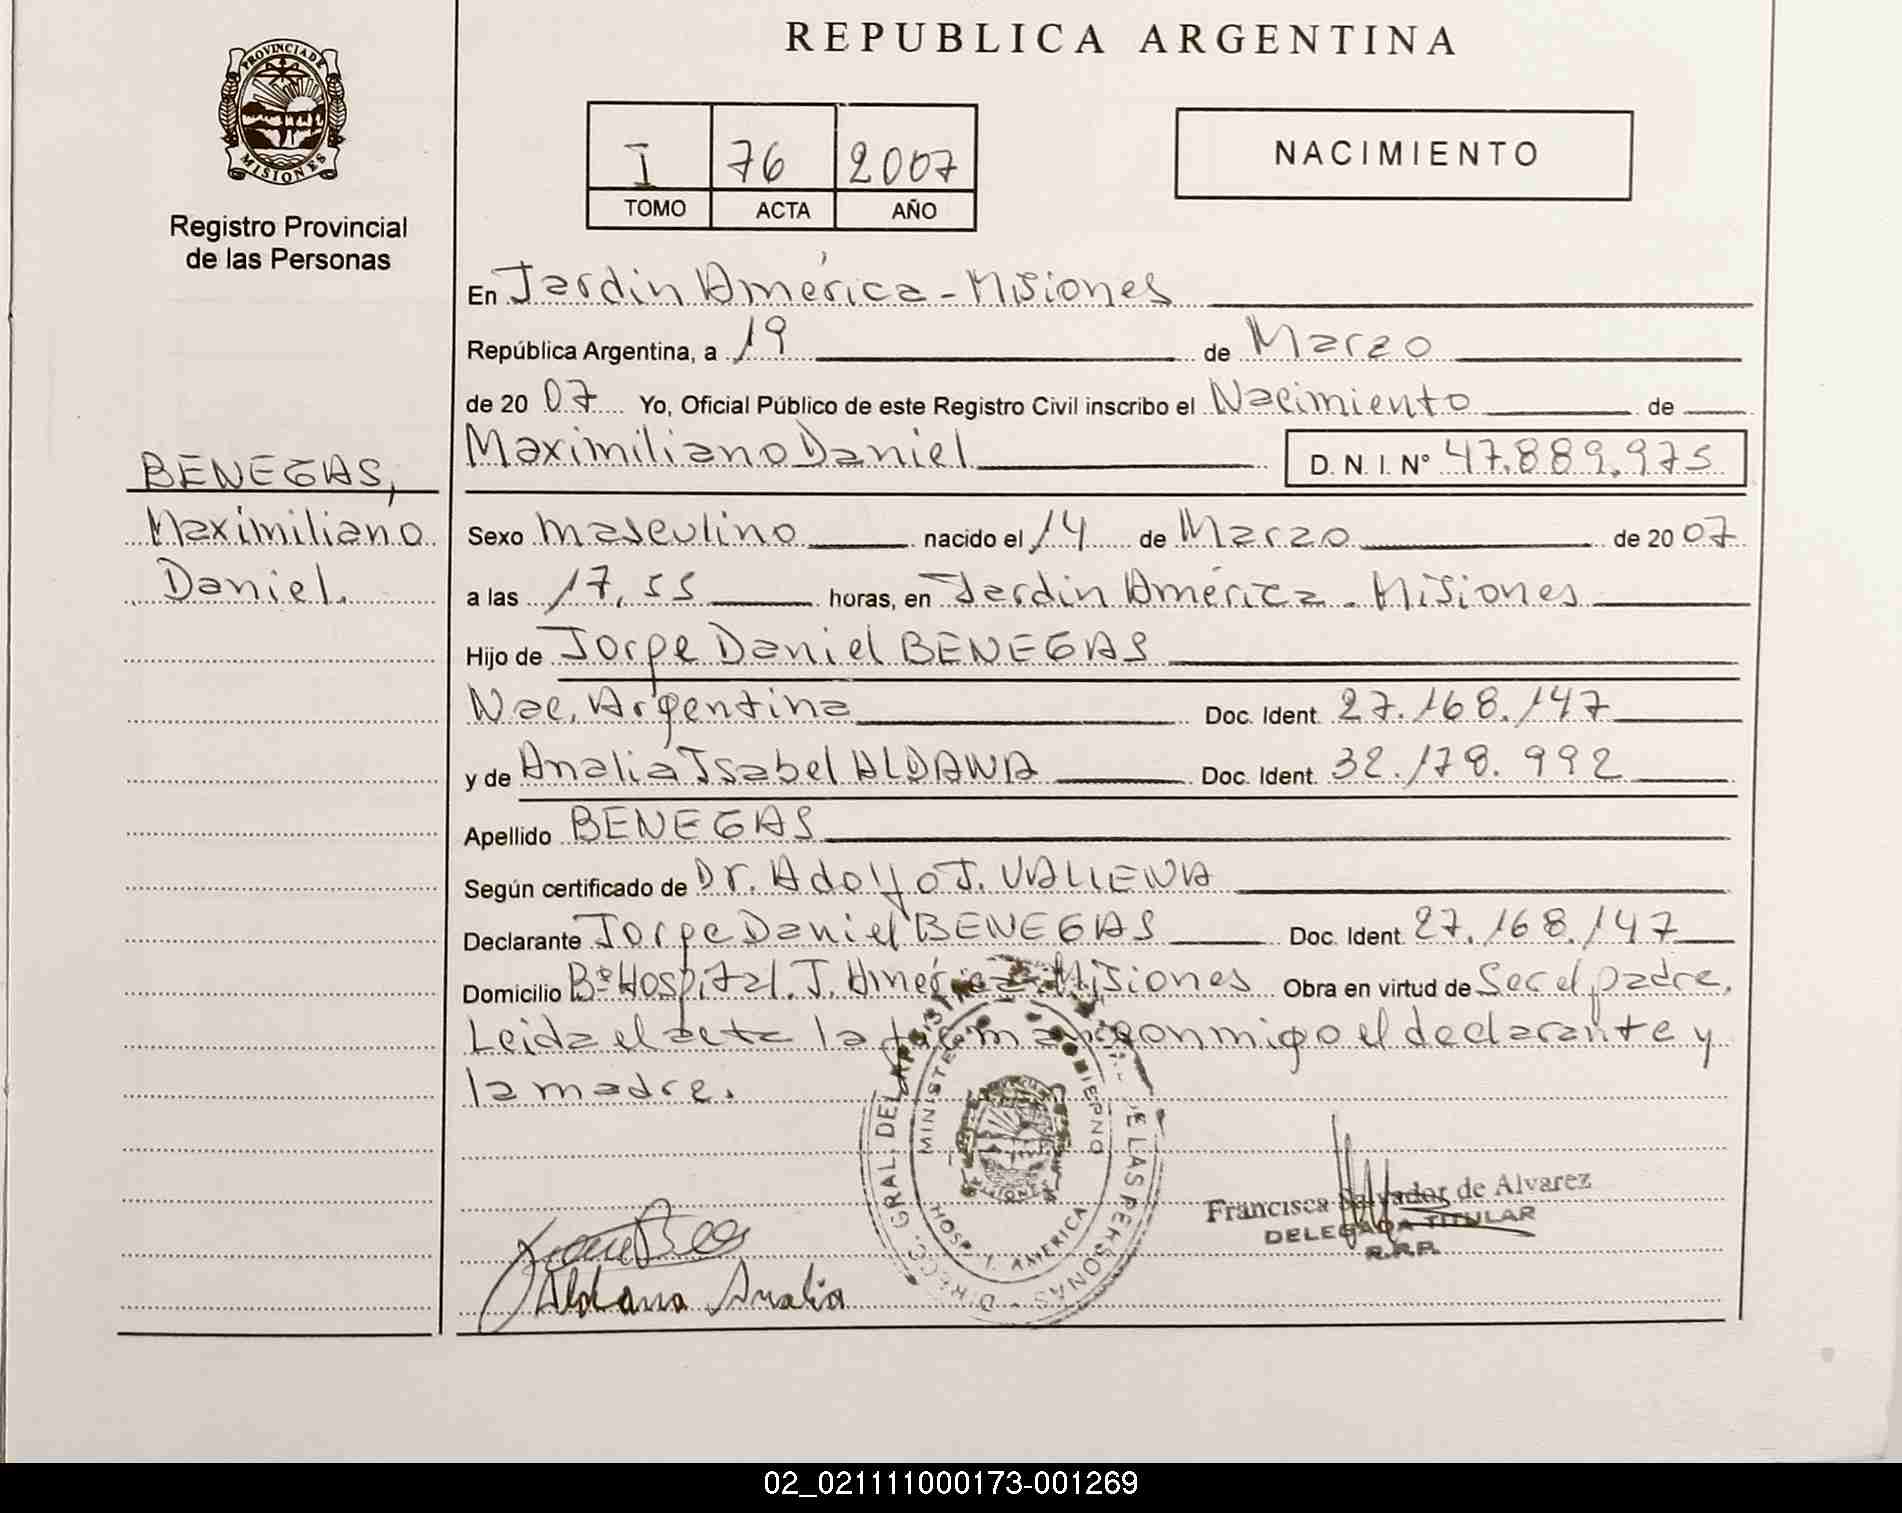 REPUBLICA ARGENTINA
PROVINCIA DE
MISIONES
Registro Provincial
de las Personas
I 76 2007
TOMO ACTA AÑO
NACIMIENTO
En Jardin América - Misiones
República Argentina, a 19 de Marzo
de 20 07 Yo, Oficial Público de este Registro Civil inscribo el Nacimiento de
Maximiliano Daniel D. N. I. N° 47.889.975
BENEGAS,
Maximiliano
Daniel.
Sexo masculino nacido el 14 de Marzo de 20 07
a las 17,55 horas, en Jardin América - Misiones
Hijo de Jorge Daniel BENEGAS
Nac. Argentina Doc. Ident. 27.168.147
y de Analia Isabel ALDANA Doc. Ident. 32.178.992
Apellido BENEGAS
Según certificado de Dr. Adolfo J. VALIENA
Declarante Jorge Daniel BENEGAS Doc. Ident. 27.168.147
Domicilio B° Hospital. J. América - Misiones Obra en virtud de Ser el padre.
Leida el acta la firman conmigo el declarante y
la madre.
DIRECC. GRAL. DEL REGISTRO DE LAS PERSONAS
MINISTERIO GOBIERNO
HOSP. J. AMERICA
Francisca Salvador de Alvarez
DELEGADA TITULAR
R.P.P.
Aldana Analia
02_021111000173-001269